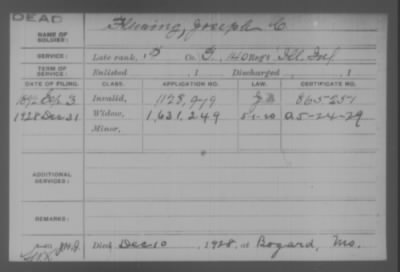 DEAD
NAME OF SOLDIER: Fleming, Joseph C.
SERVICE: Late rank, Co. G, 140 Regt Ill. Inf.
TERM OF SERVICE: Enlisted , 1 Discharged , 1
DATE OF FILING. CLASS. APPLICATION NO. LAW. CERTIFICATE NO.
1892 3 Invalid, 1128,979 865251
1928 Dec 31 Widow, 1,621,249 5-1-20 A5-24-29
Minor,
ADDITIONAL SERVICES:
REMARKS:
Died Dec 10, 1928, at Bogard, Mo.